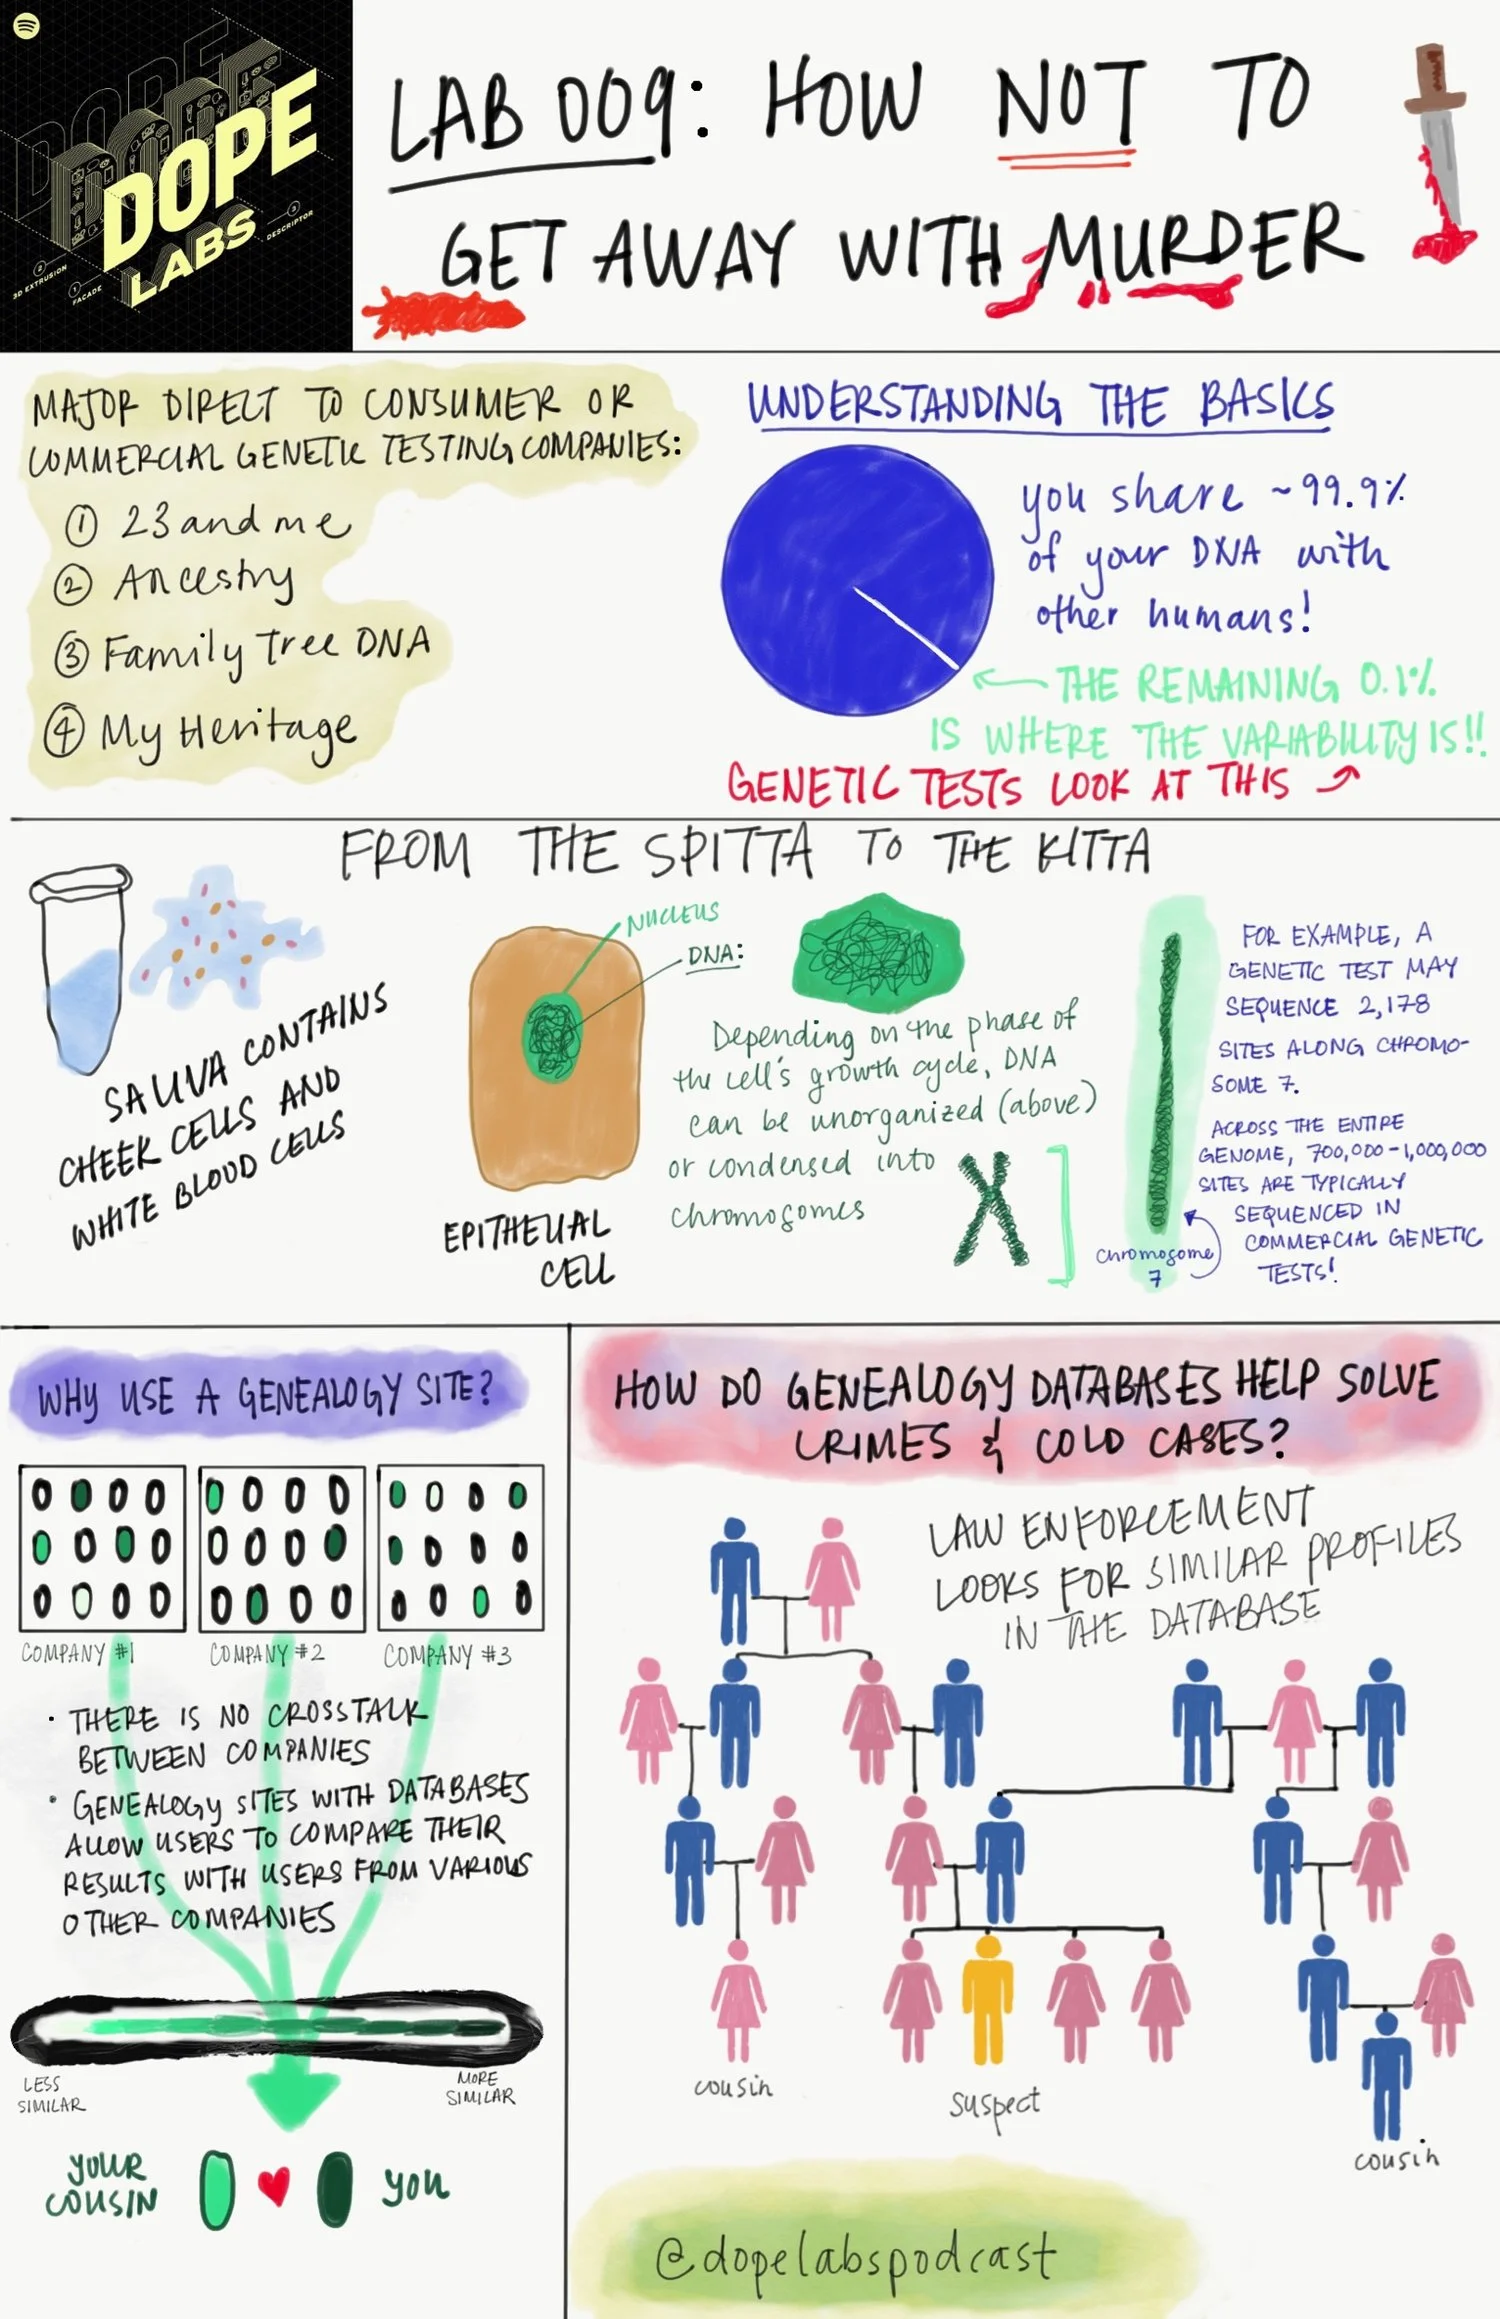 DOPE
LABS
3D EXTRUSION
FACADE
DESCRIPTOR
LAB 009: HOW NOT TO
GET AWAY WITH MURDER
MAJOR DIRECT TO CONSUMER OR
COMMERCIAL GENETIC TESTING COMPANIES:
① 23 and me
② Ancestry
③ Family Tree DNA
④ My Heritage
UNDERSTANDING THE BASICS
you share ~99.9%
of your DNA with
other humans!
THE REMAINING 0.1%
IS WHERE THE VARIABILITY IS!!
GENETIC TESTS LOOK AT THIS
FROM THE SPITTA TO THE KITTA
SALIVA CONTAINS
CHEEK CELLS AND
WHITE BLOOD CELLS
NUCLEUS
DNA:
EPITHELIAL
CELL
Depending on the phase of
the cell's growth cycle, DNA
can be unorganized (above)
or condensed into
chromosomes
chromosome
7
FOR EXAMPLE, A
GENETIC TEST MAY
SEQUENCE 2,178
SITES ALONG CHROMO-
SOME 7.
ACROSS THE ENTIRE
GENOME, 700,000-1,000,000
SITES ARE TYPICALLY
SEQUENCED IN
COMMERCIAL GENETIC
TESTS!
WHY USE A GENEALOGY SITE?
COMPANY #1
COMPANY #2
COMPANY #3
· THERE IS NO CROSSTALK
BETWEEN COMPANIES
· GENEALOGY SITES WITH DATABASES
ALLOW USERS TO COMPARE THEIR
RESULTS WITH USERS FROM VARIOUS
OTHER COMPANIES
LESS
SIMILAR
MORE
SIMILAR
YOUR
COUSIN
you
HOW DO GENEALOGY DATABASES HELP SOLVE
CRIMES & COLD CASES?
LAW ENFORCEMENT
LOOKS FOR SIMILAR PROFILES
IN THE DATABASE
cousin
suspect
cousin
@dopelabspodcast